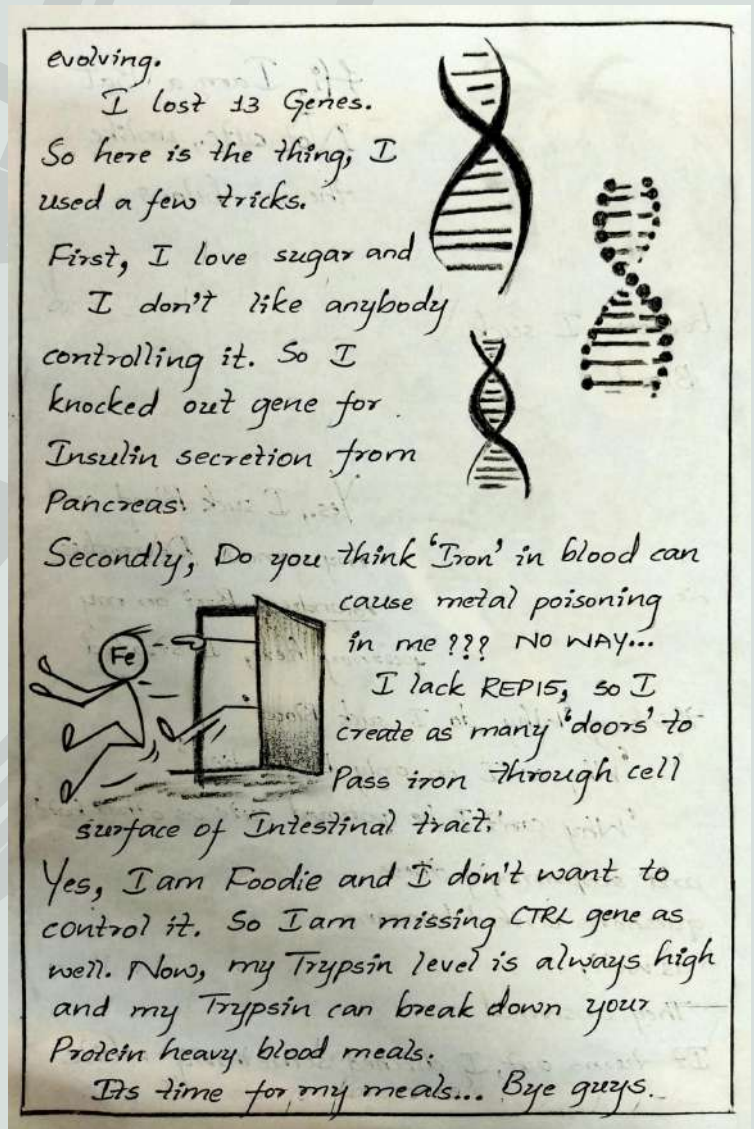 evolving.
I lost 13 Genes.
So here is the thing, I
used a few tricks.
First, I love sugar and
I don't like anybody
controlling it. So I
knocked out gene for
Insulin secretion from
Pancreas.
Secondly, Do you think 'Iron' in blood can
cause metal poisoning
in me??? NO WAY...
Fe
I lack REP15, so I
create as many 'doors' to
Pass iron through cell
surface of Intestinal tract.
Yes, I am Foodie and I don't want to
control it. So I am missing CTRL gene as
well. Now, my Trypsin level is always high
and my Trypsin can break down your
Protein heavy blood meals.
Its time for my meals... Bye guys.